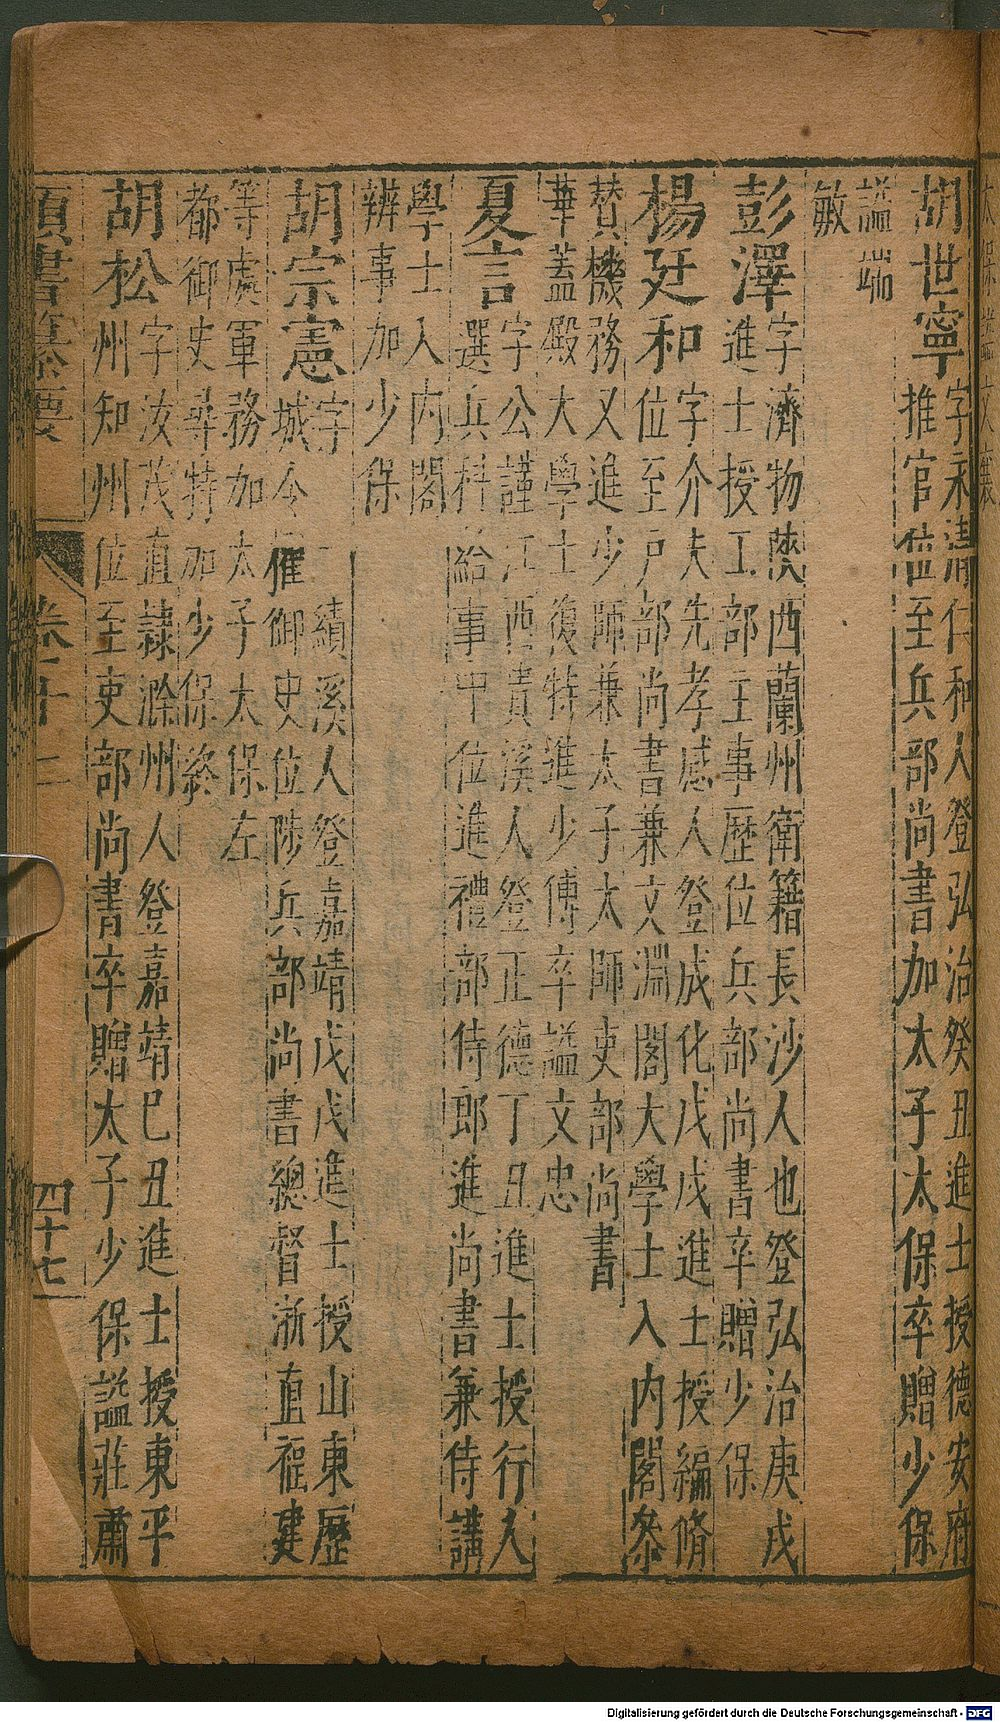 胡世寧
字永清仁和人登弘治癸丑進士授德安府
推官位至兵部尚書加太子太保卒贈少保
諡端
敏
彭澤
字濟物陝西蘭州衛籍長沙人也登弘治庚戌
進士授工部主事歷位兵部尚書卒贈少保
楊廷和
字介夫先孝感人登成化戊戌進士授編脩
位至戶部尚書兼文淵閣大學士入內閣叅
贊機務又進少師兼太子太師吏部尚書
華蓋殿大學士復特進少傅卒諡文忠
夏言
字公謹江西貴溪人登正德丁丑進士授行人
選兵科給事中位進禮部侍郎進尚書兼侍講
學士入內閣
辨事加少保
胡宗憲
字 績溪人登嘉靖戊戌進士授山東歷
城令擢御史位陟兵部尚書總督浙直福建
等處軍務加太子太保左
都御史尋特加少保終
胡松
字汝茂直隸滁州人登嘉靖己丑進士授東平
州知州位至吏部尚書卒贈太子少保諡莊肅
書纂要
卷
四十七
Digitalisierung gefördert durch die Deutsche Forschungsgemeinschaft - DFG